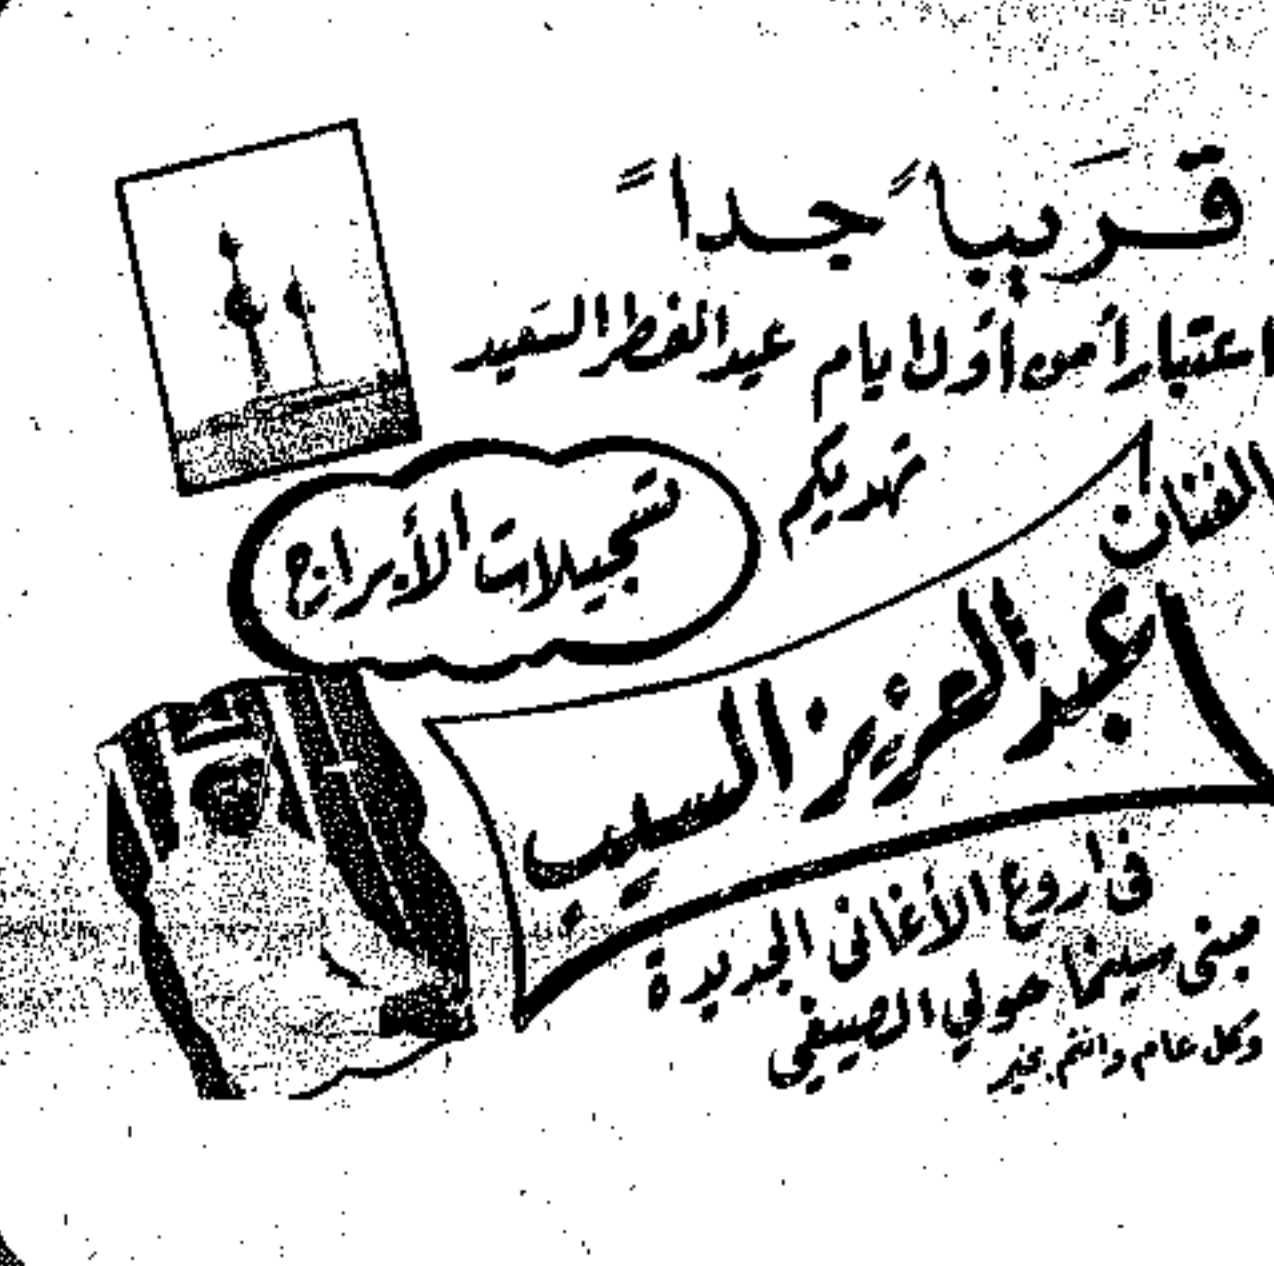 قَريباً جداً
اعتباراً من أول ايام عيد الفطر السَعيد
تهديكم
تسجيلات الأبراج
الفنان
عبد العزيز السيب
في اروع الأغاني الجديدة
مبنى سينما حولي الصيفي
وكل عام وانتم بخير